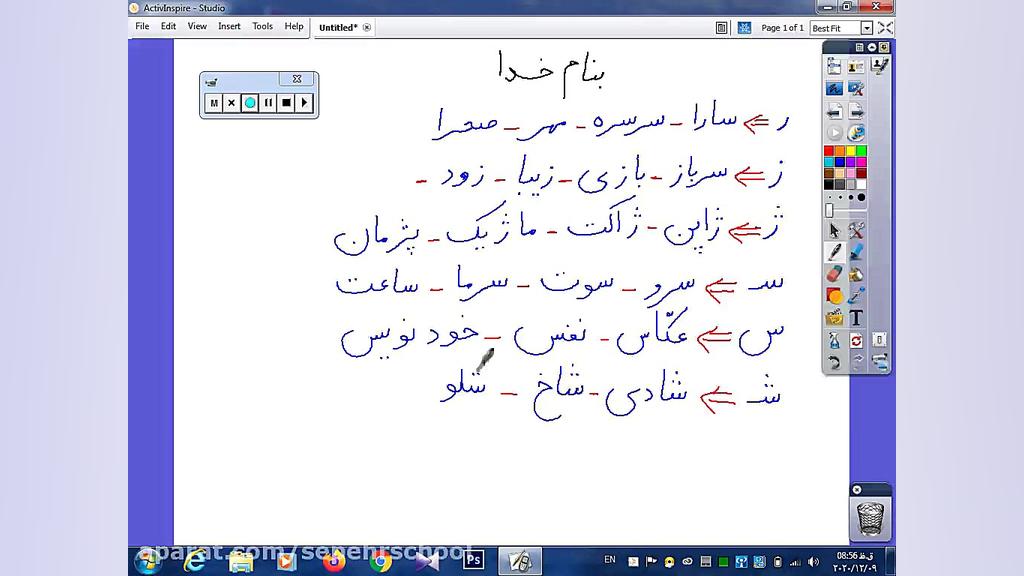 ActivInspire - Studio
File Edit View Insert Tools Help Untitled* Page 1 of 1 Best Fit
بنام خدا
ر ⇐ سارا - سرسره - مهر - صحرا
ز ⇐ سرباز - بازی - زیبا - زود -
ژ ⇐ ژاپن - ژاکت - ماژیک - پژمان
سـ ⇐ سرو - سوت - سرما - ساعت
س ⇐ عکّاس - نفس - خودنویس
شـ ⇐ شادی - شاخ - شلو
aparat.com/sepehrschool
EN 08:56 ق.ظ
۲۰۲۰/۱۲/۰۹